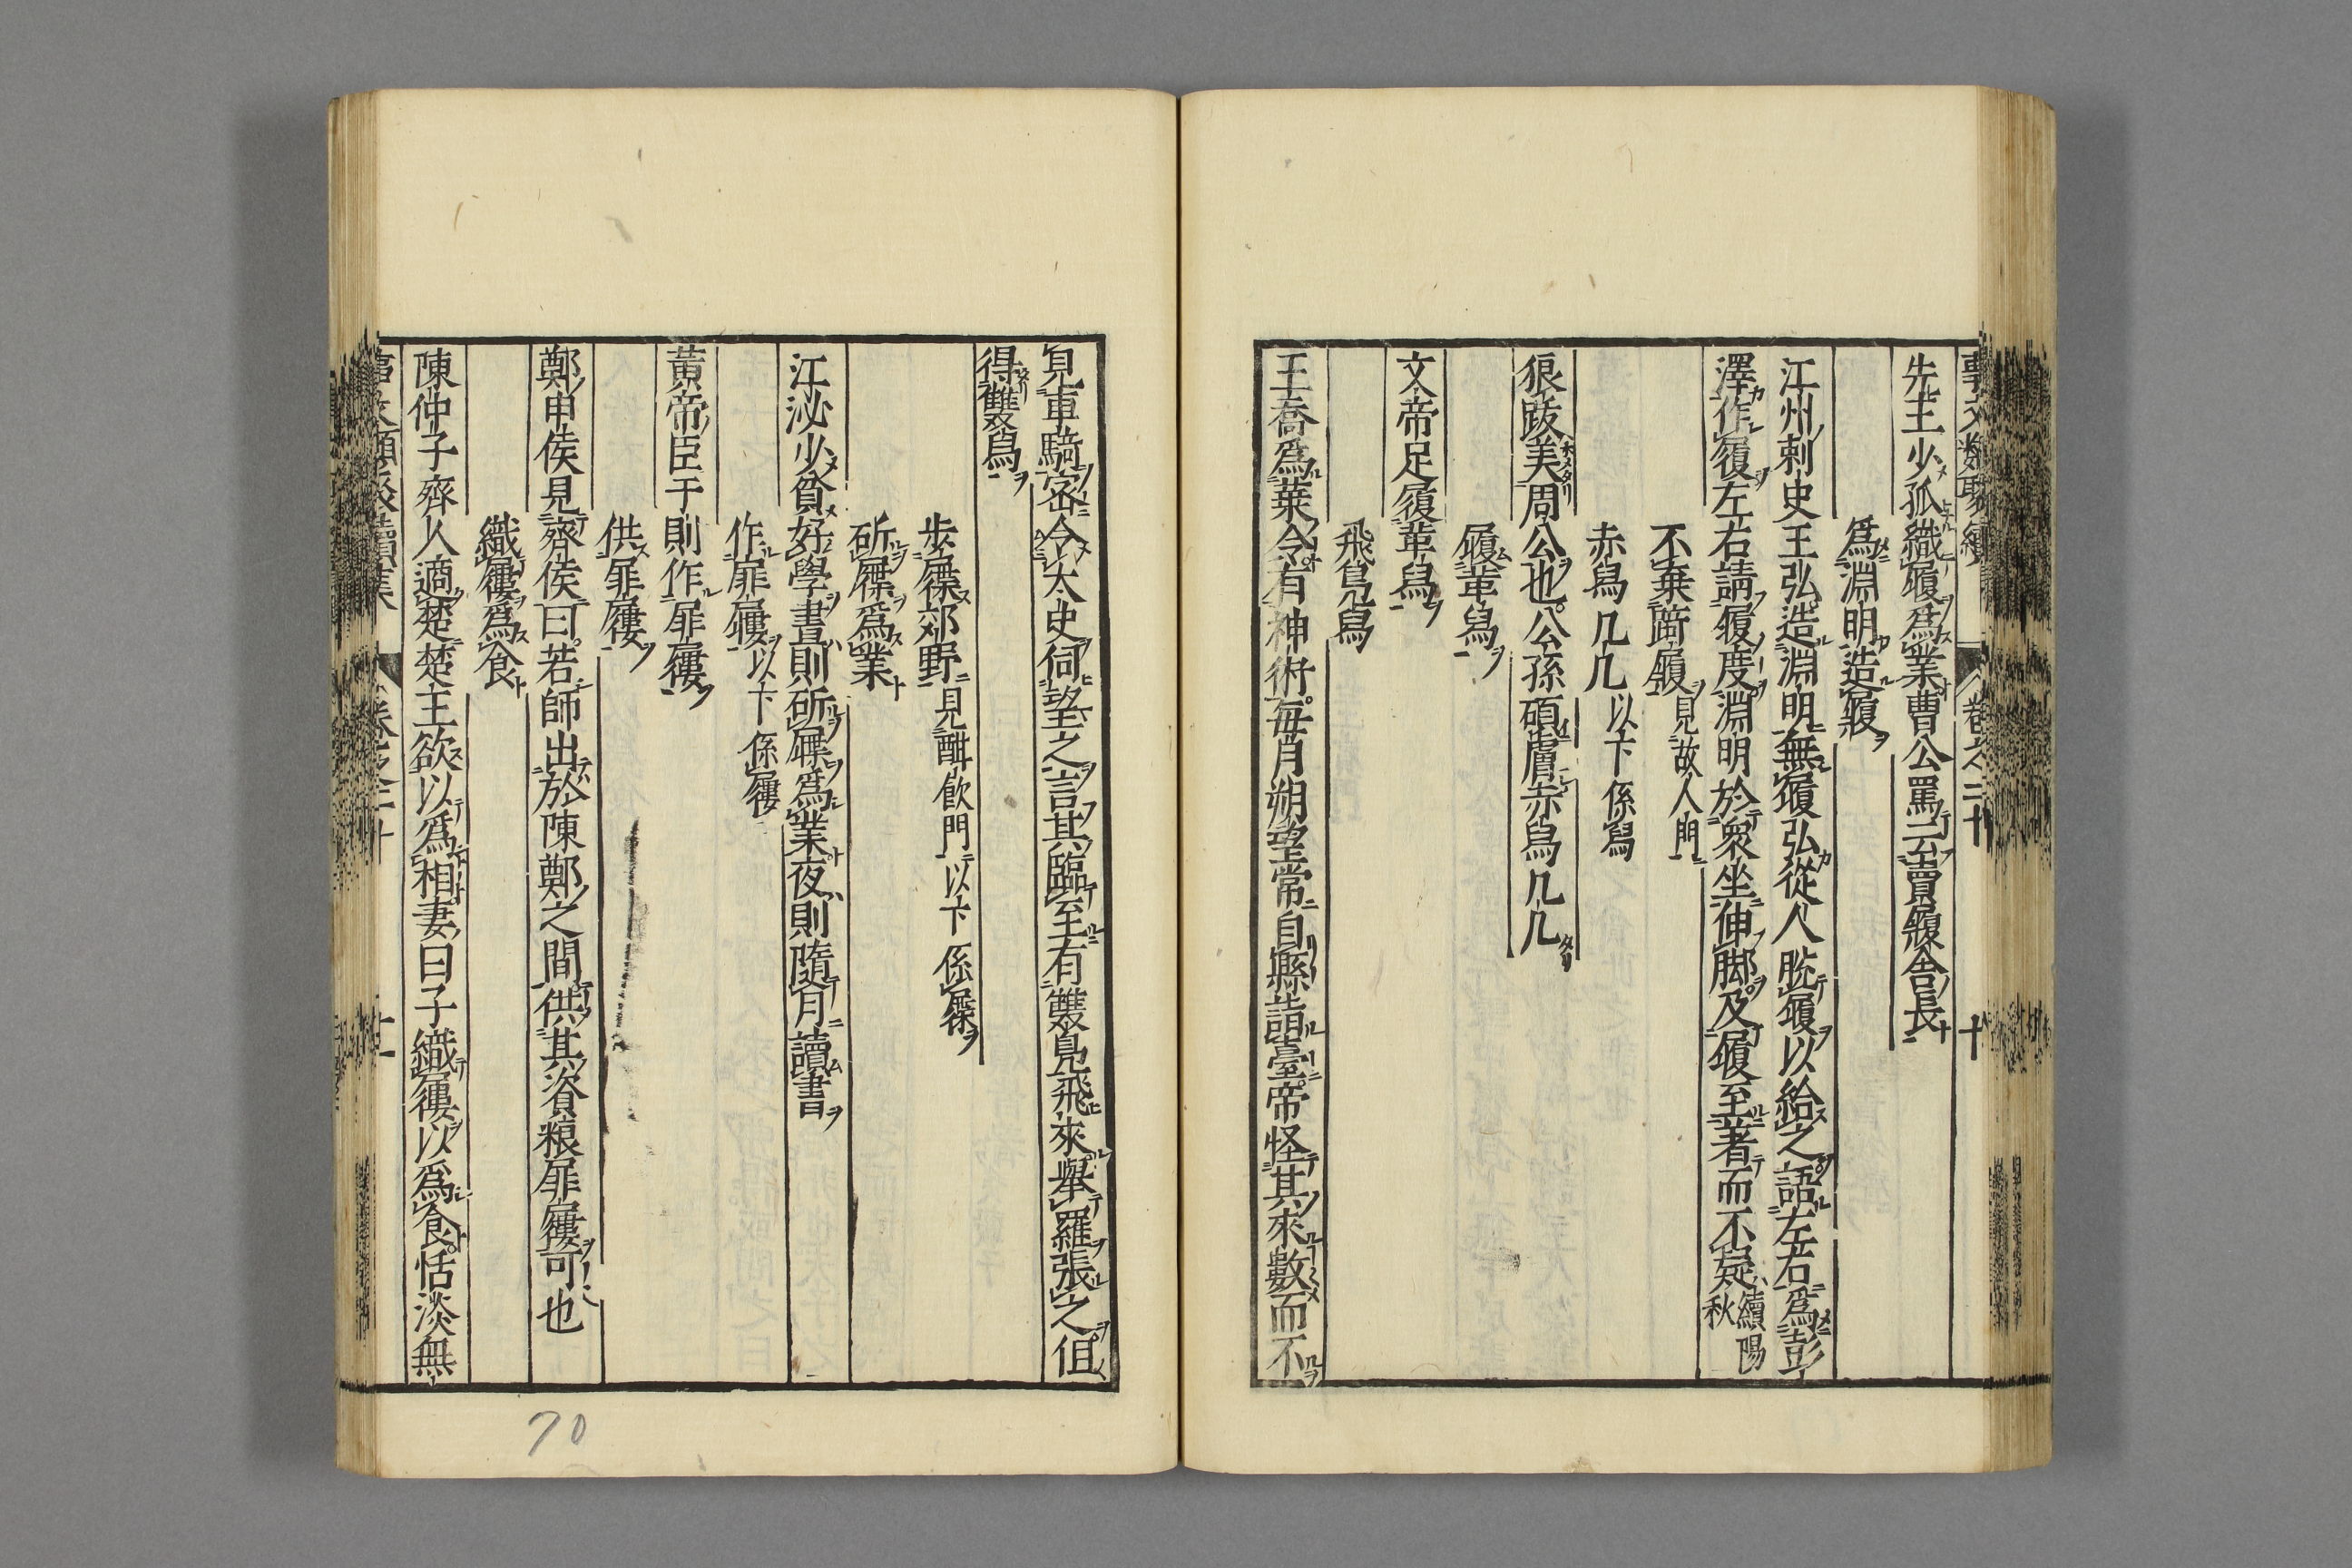 先主少孤織履爲業曹公罵云賣履舍長
爲淵明造履
江州刺史王弘造淵明無履弘從人脫履以給之語左右爲彭
澤作履左右請履度淵明於衆坐伸脚及履至著而不疑續陽秋
不棄蹄履見故人門
赤舄几几以下係舄
狼跋美周公也公孫碩膚赤舄几几
履革舄
文帝足履革舄
飛鳧舄
王喬爲葉令有神術每月朔望常自縣詣臺帝怪其來數而不
見車騎密令太史伺望之言其臨至有雙鳧飛來舉羅張之但
得雙舄
步屧郊野見酣飲門以下係屧
斫屧爲業
江泌少貧好學晝則斫屧爲業夜則隨月讀書
作扉屨以下係屨
黃帝臣于則作扉屨
供扉屨
鄭申侯見齊侯曰若師出於陳鄭之間供其資粮扉屨可也
織屨爲食
陳仲子齊人適楚楚王欲以爲相妻曰子織屨以爲食恬淡無
70